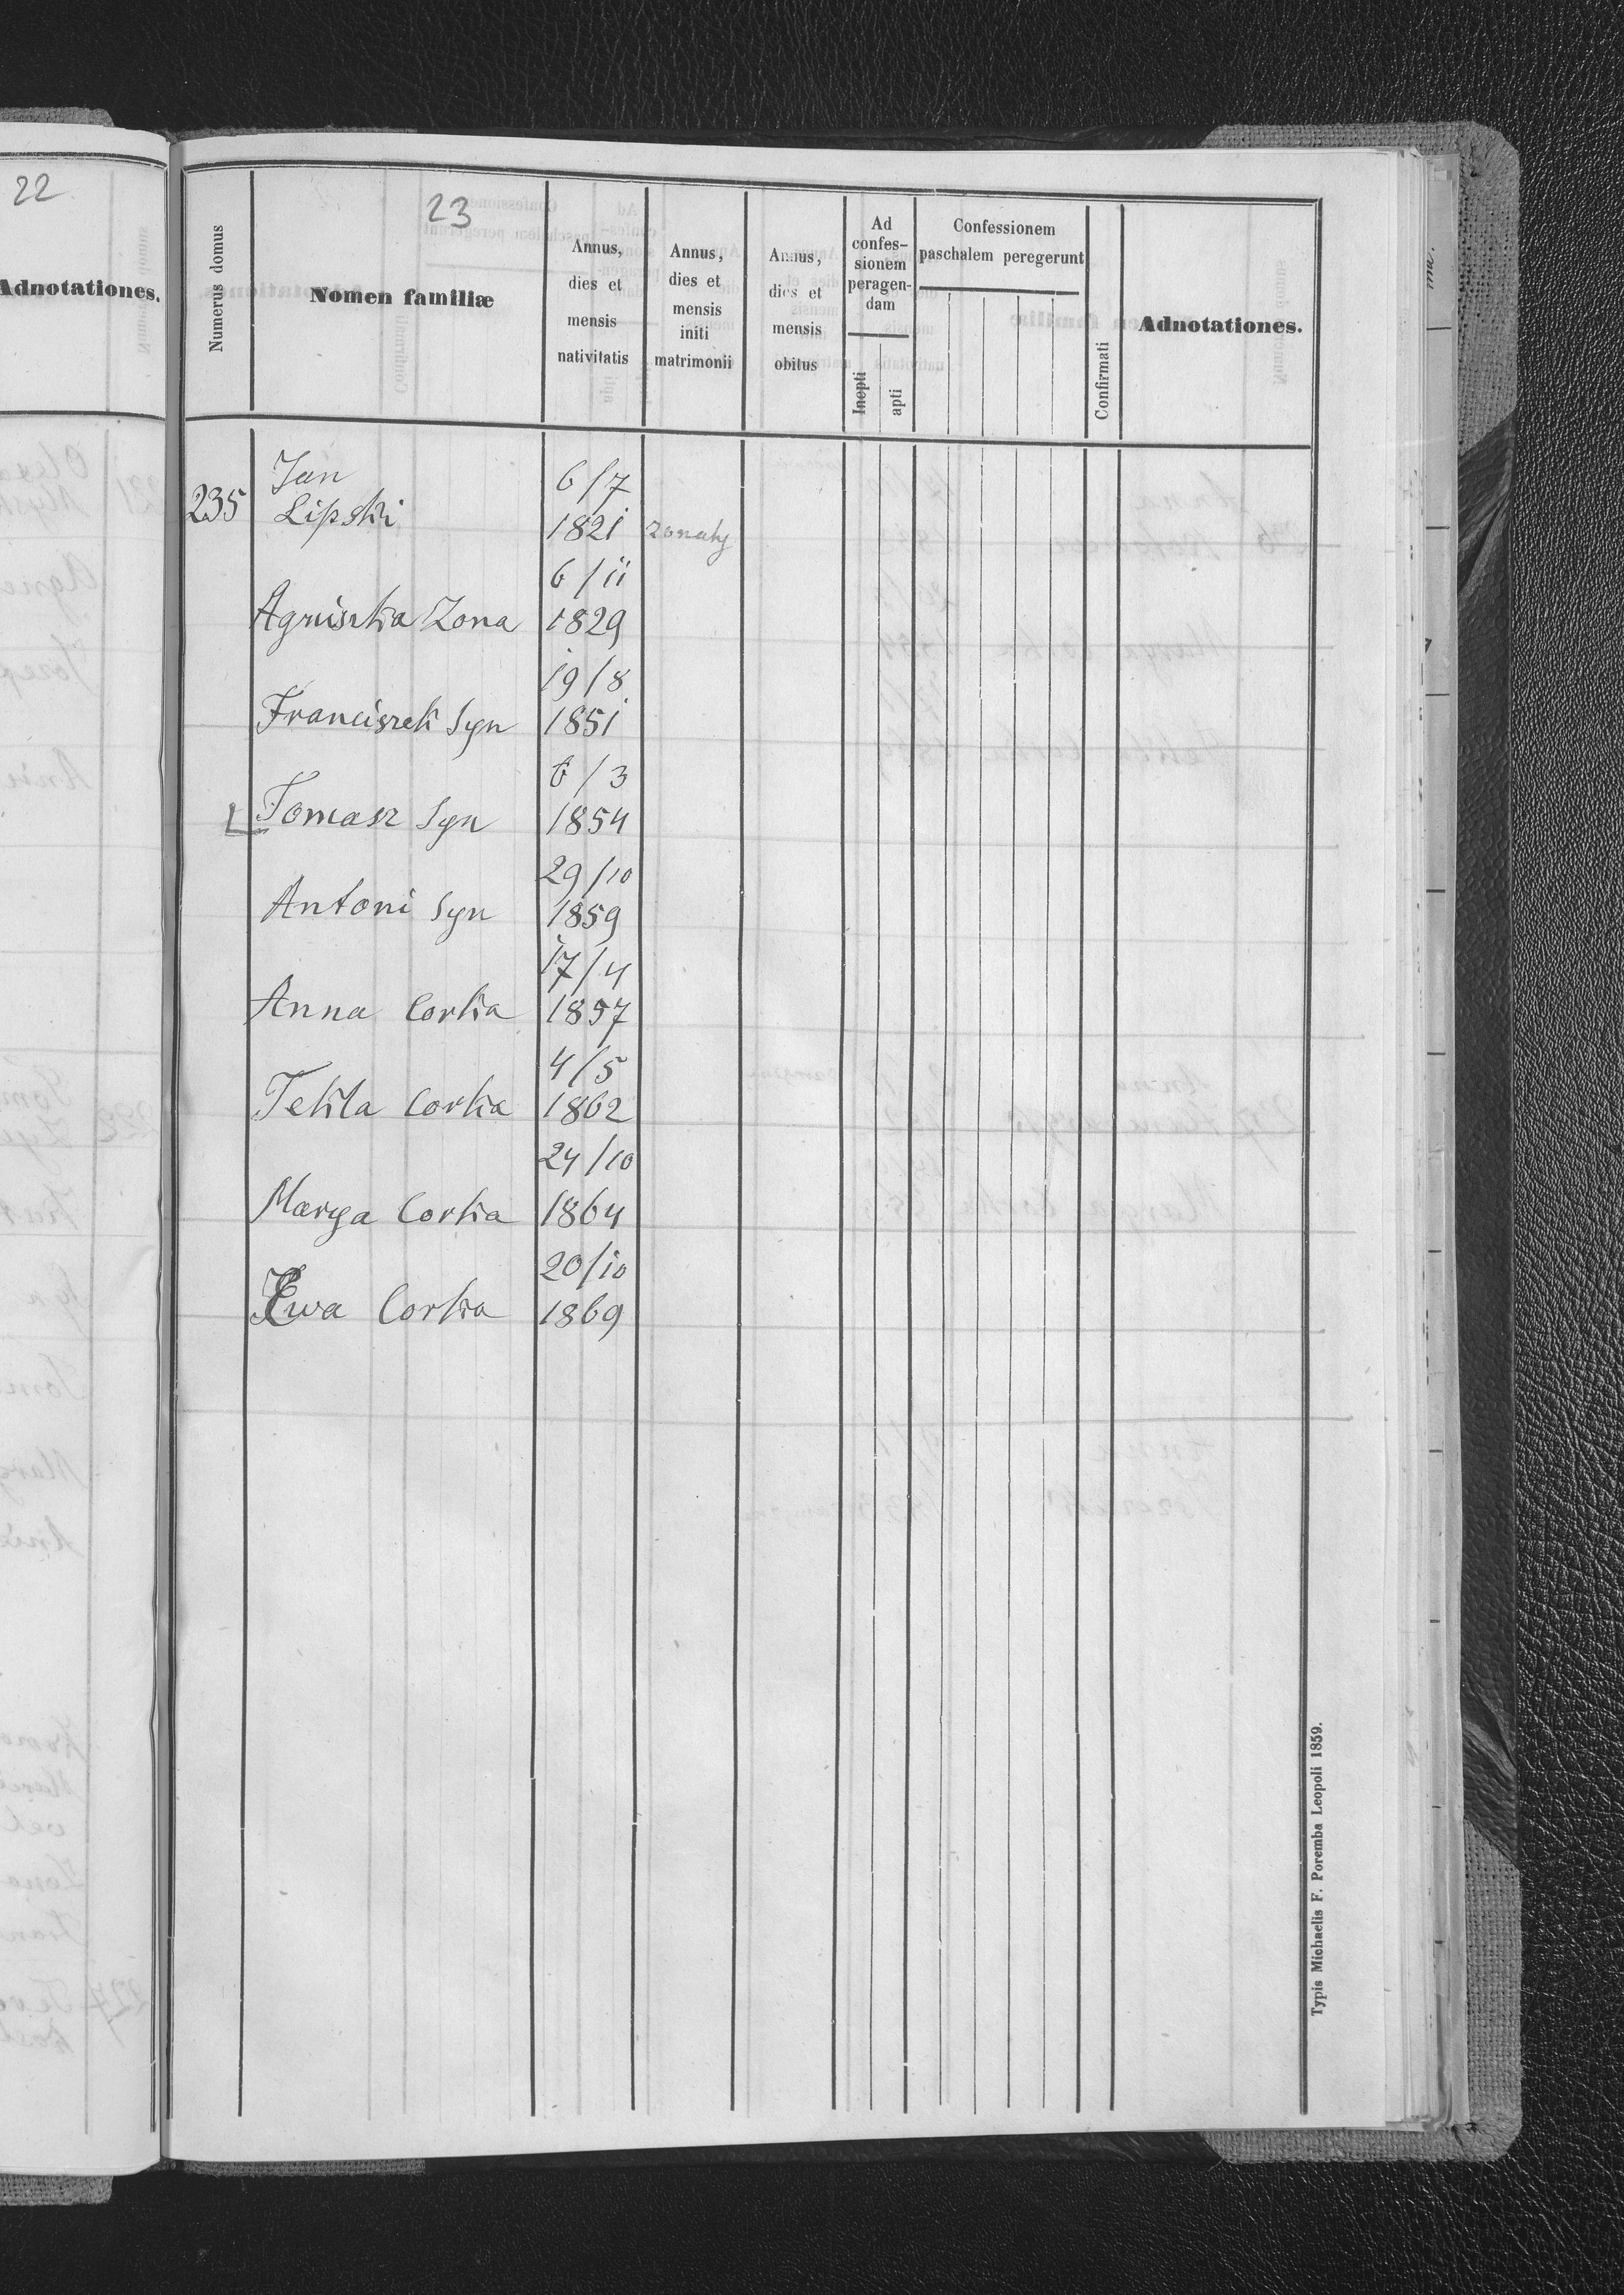 22
Adnotationes.
23
Numerus domus
Nomen familiæ
Annus,
dies et
mensis
nativitatis
Annus,
dies et
mensis
initi
matrimonii
Annus,
dies et
mensis
obitus
Ad
confes-
sionem
peragen-
dam
Inepti
apti
Confessionem
paschalem peregerunt
Confirmati
Adnotationes.
Jan 6/7
235 Lipski 1821 zonaty
6/11
Agniszka Zona 1829
19/8
Franciszek Syn 1851
6/3
Tomasz Syn 1854
29/10
Antoni Syn 1859
17/4
Anna Corka 1857
4/5
Tekla Corka 1862
24/10
Marya Corka 1864
20/10
Ewa Corka 1869
Typis Michaelis F. Poremba Leopoli 1859.